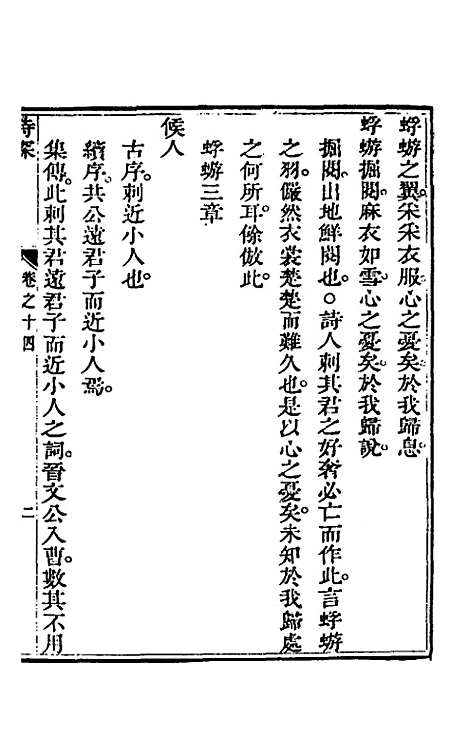 蜉蝣之翼。采采衣服。心之憂矣。於我歸息。
蜉蝣掘閱。麻衣如雪。心之憂矣。於我歸說。
掘閱。出地鮮閱也。○詩人刺其君之好奢必亡而作此。言蜉蝣
之羽。儼然衣裳楚楚。而難久也。是以心之憂矣。未知於我歸處
之何所耳。餘倣此。
蜉蝣三章
候人
古序。刺近小人也。
續序。共公遠君子而近小人焉。
集傳。此刺其君遠君子而近小人之詞。晉文公入曹。數其不用
卷之十四
二